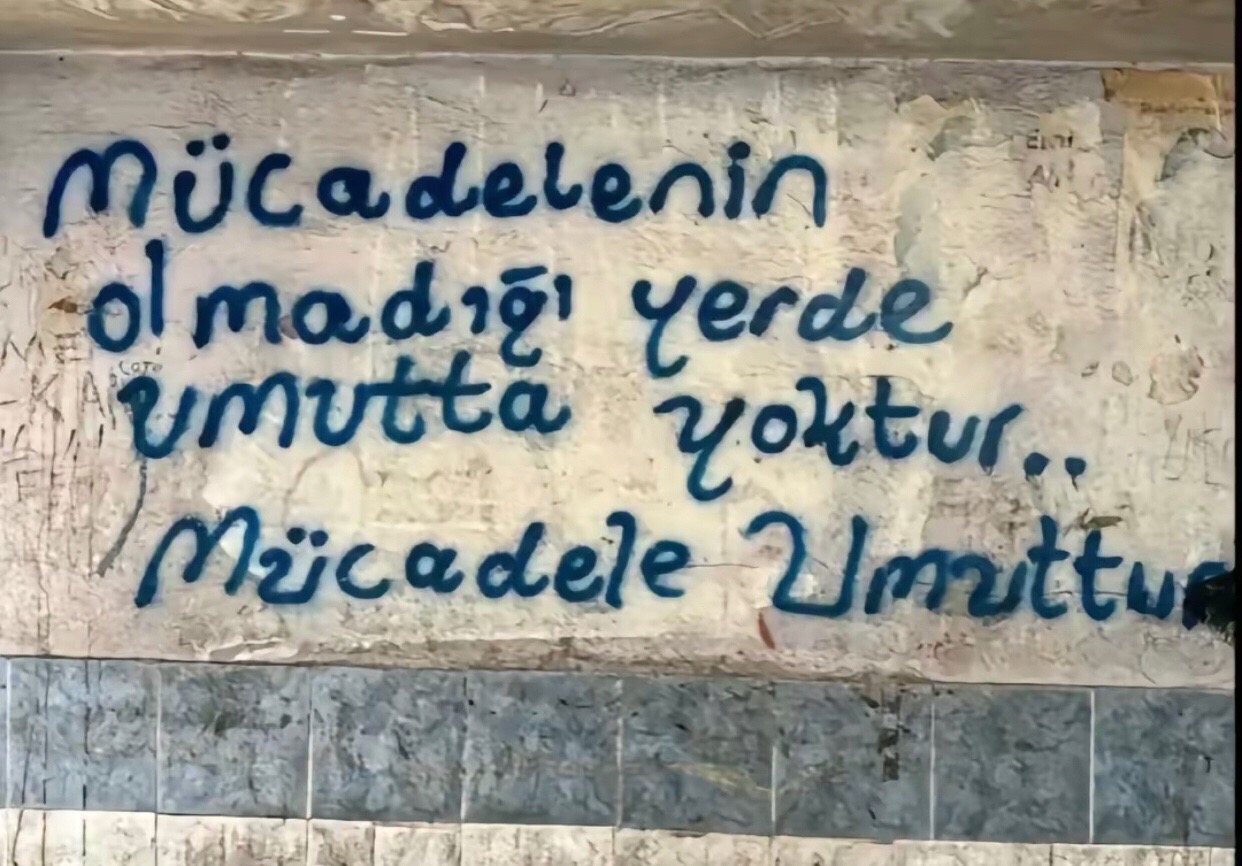 Mücadelenin
olmadığı yerde
umutta yoktur..
Mücadele Umuttur